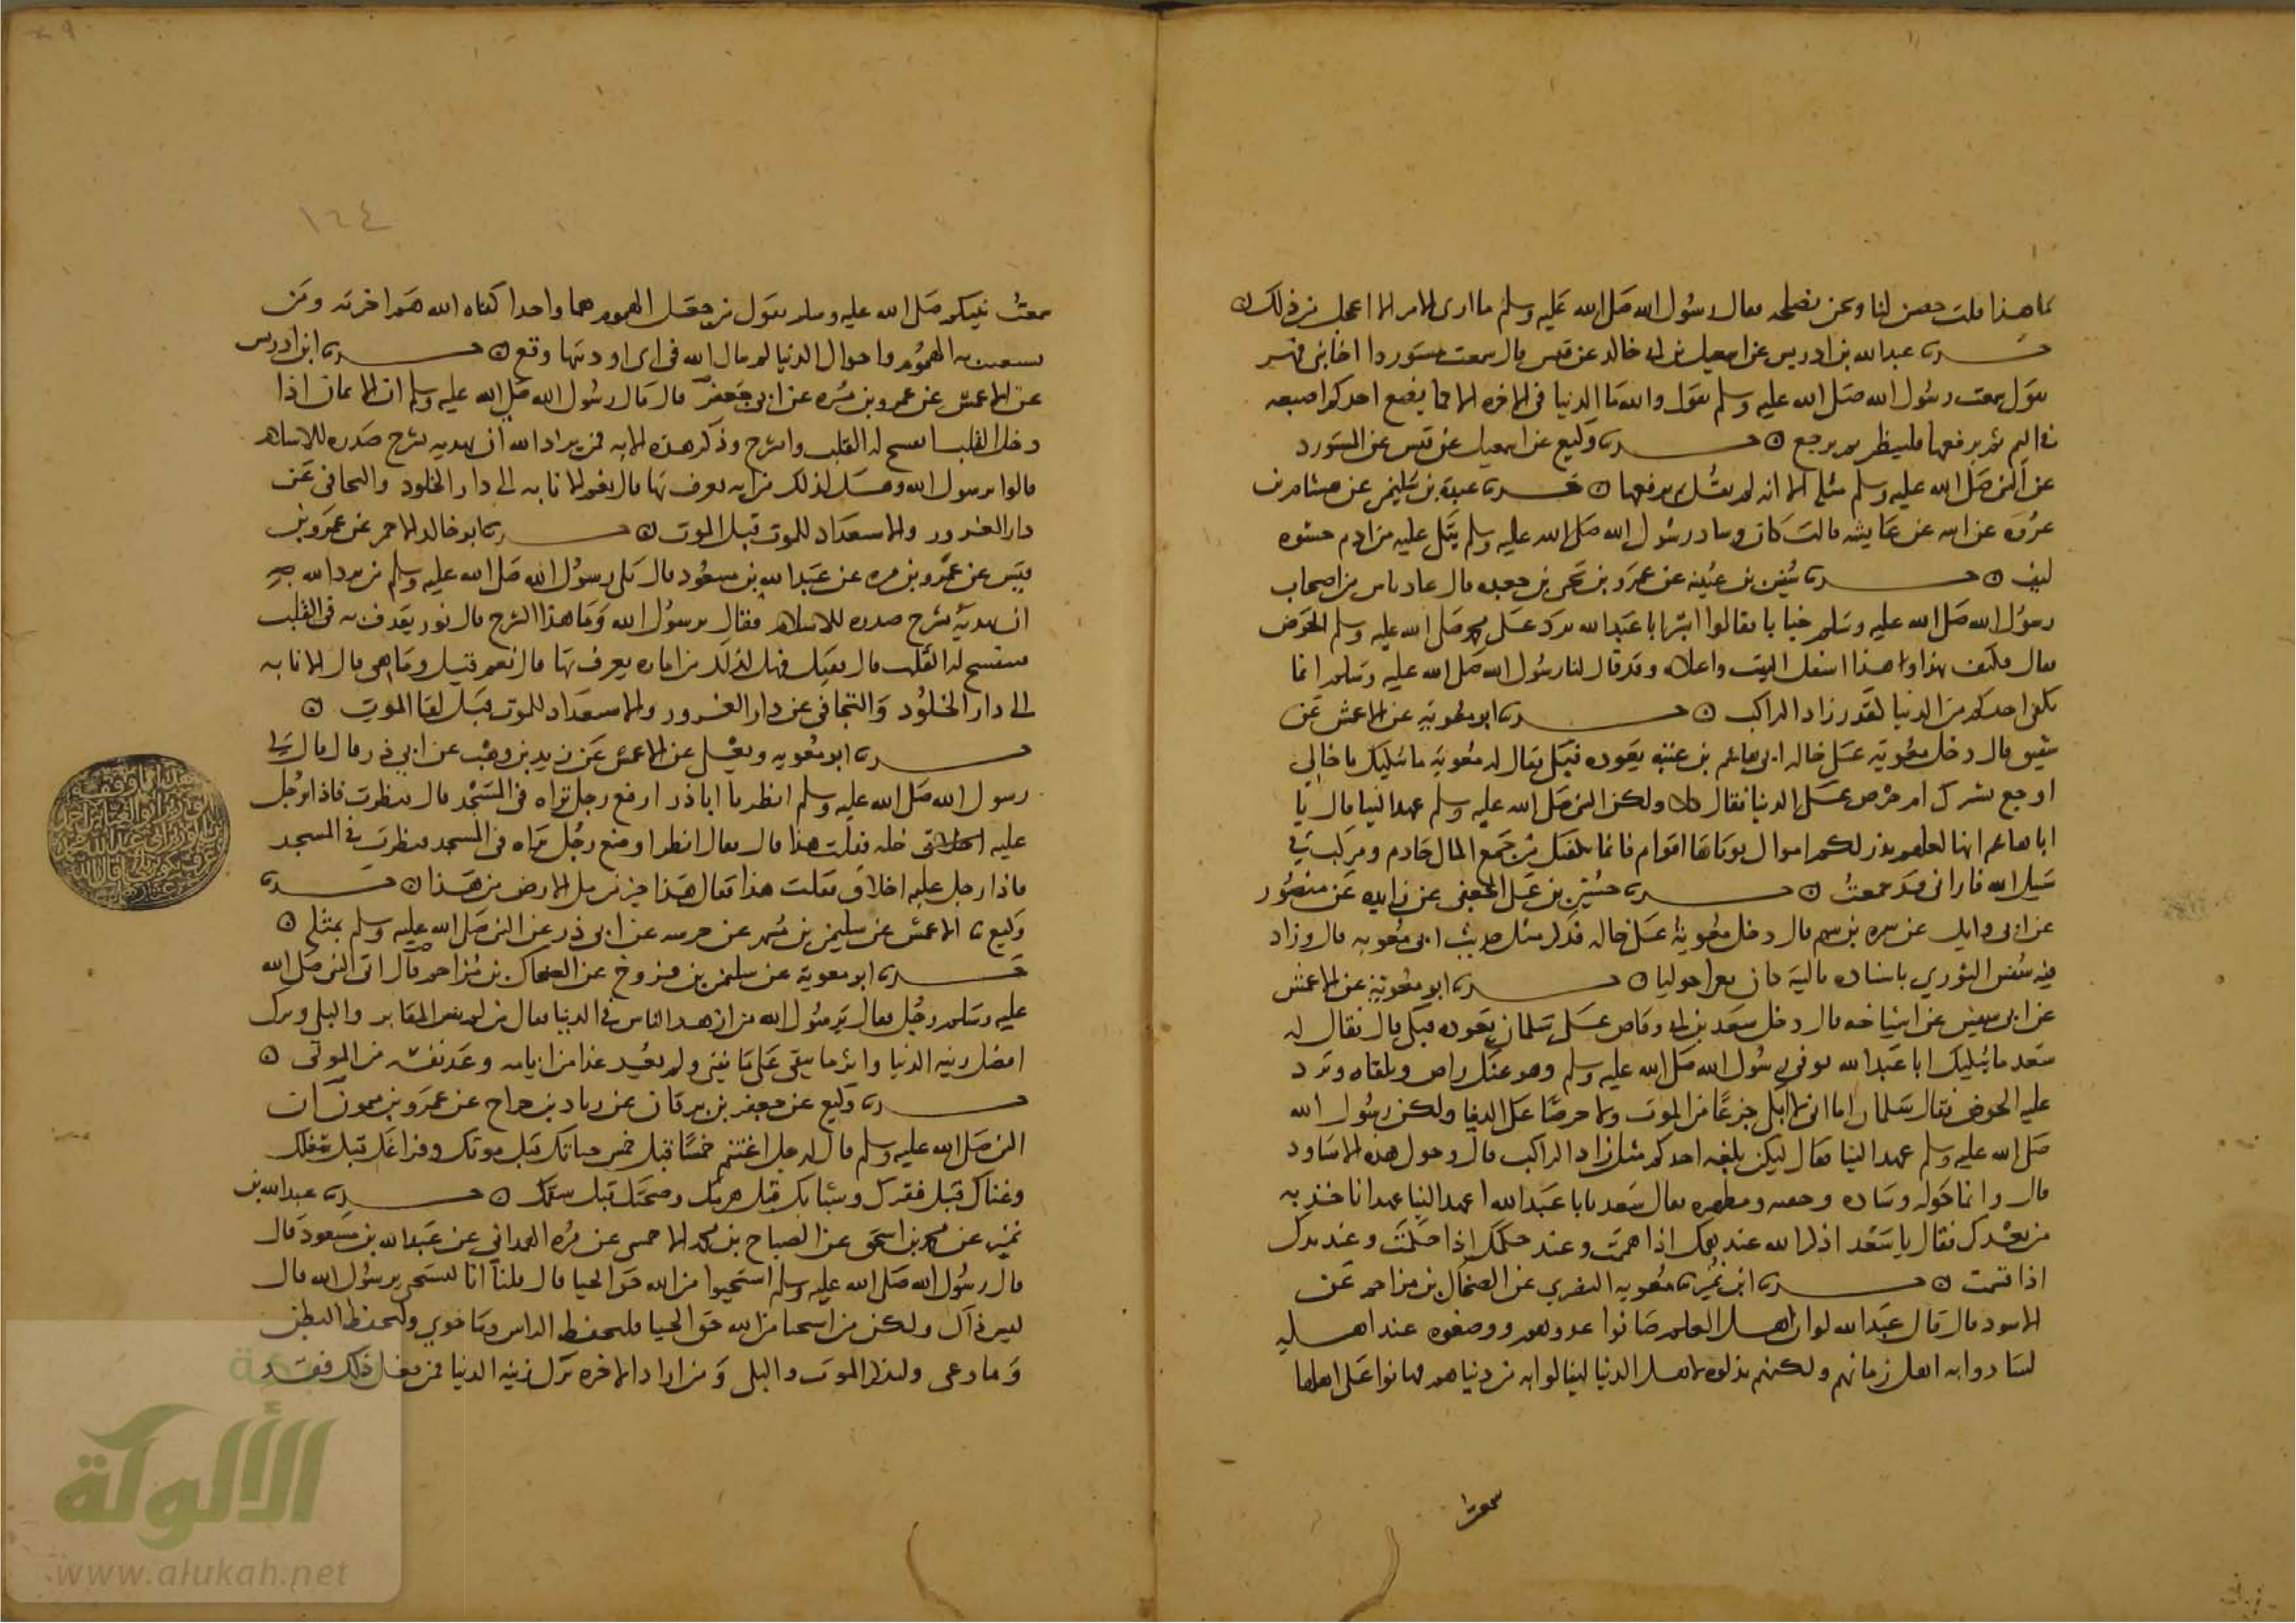 ما هذا قلت خص لنا وحن نصلحه فقال رسول الله صلى الله عليه وسلم ما ارى الامر الا اعجل من ذلك
حدثنا عبدالله بن ادريس عن اسمعيل بن ابي خالد عن قيس قال سمعت مستوردا اخا بني فهر
يقول سمعت رسول الله صلى الله عليه وسلم يقول والله ما الدنيا في الاخرة الا كما يضع احدكم اصبعه
في اليم ثم يرفعها فلينظر بم يرجع حدثنا وكيع عن اسمعيل عن قيس عن المستورد
عن النبي صلى الله عليه وسلم مثله الا انه لم يقل ثم يرفعها حدثنا عبدة بن سليمن عن هشام بن
عروة عن ابيه عن عايشة قالت كان وساد رسول الله صلى الله عليه وسلم يتكي عليه من ادم حشوه
ليف حدثنا سفين بن عيينة عن عمرو بن يحيى بن جعدة قال عاد ناس من اصحاب
رسول الله صلى الله عليه وسلم خبابا فقالوا ابشر ابا عبدالله ترد على محمد صلى الله عليه وسلم الحوض
فقال فكيف بهذا وهذا اسفل البيت واعلاه وقد قال لنا رسول الله صلى الله عليه وسلم انما
يكفي احدكم من الدنيا كقدر زاد الراكب حدثنا ابو معوية عن الاعمش عن
شقيق قال دخل معوية على خاله ابي هاشم بن عتبة يعوده فبكى فقال له معوية ما يبكيك يا خالي
اوجع يشرك ام حرص على الدنيا فقال كلا ولكن النبي صلى الله عليه وسلم عهد الينا قال يا
ابا هاشم انها لعلها تدرككم اموال يوتاها اقوام فانما يكفيك من جمع المال خادم ومركب في
سبيل الله فاراني قد جمعت حدثنا حسين بن علي الجعفي عن زايدة عن منصور
عن ابي وايل عن سمرة بن سهم قال دخل معوية على خاله فذكر مثل حديث ابي معوية قال وزاد
فيه سفين الثوري باسناده حدثنا ابو معوية عن الاعمش
عن ابي سفين عن اشياخه قال دخل سعد بن ابي وقاص على سلمان يعوده فبكى قال فقال له
سعد ما يبكيك ابا عبدالله توفي رسول الله صلى الله عليه وسلم وهو عنك راض وتلقاه وترد
عليه الحوض فقال سلمان اما اني لا ابكي جزعا من الموت ولا حرصا على الدنيا ولكن رسول الله
صلى الله عليه وسلم عهد الينا فقال ليكن بلغة احدكم مثل زاد الراكب قال وحولي هذه الاساود
قال وانما حوله وسادة وجفنة ومطهرة فقال سعد يا ابا عبدالله اعهد الينا عهدا ناخذ به
من بعدك فقال يا سعد اذكر الله عند همك اذا هممت وعند حكمك اذا حكمت وعند يدك
اذا قسمت حدثنا ابن نمير ثنا معوية النصري عن الضحاك بن مزاحم عن
الاسود قال قال عبدالله لو ان اهل العلم صانوا علمهم ووضعوه عند اهله
لسادوا به اهل زمانهم ولكنهم بذلوه لاهل الدنيا لينالوا به من دنياهم فهانوا على اهلها
سمعت
١٦٤
سمعت نبيكم صلى الله عليه وسلم يقول من جعل الهموم هما واحدا كفاه الله هم اخرته ومن
تشعبت به الهموم واحوال الدنيا لم يبال الله في اي اوديتها وقع حدثنا ابن ادريس
عن الاعمش عن عمرو بن مرة عن ابي جعفر قال قال رسول الله صلى الله عليه وسلم ان الايمان اذا
دخل القلب انفسح له القلب وانشرح وذكر هذه الاية فمن يرد الله ان يهديه يشرح صدره للاسلام
قالوا يرسول الله وهل لذلك من اية يعرف بها قال نعم الانابة الى دار الخلود والتجافي عن
دار الغرور والاستعداد للموت قبل الموت حدثنا ابو خالد الاحمر عن عمرو بن
قيس عن عمرو بن مرة عن عبدالله بن مسعود قال تلى رسول الله صلى الله عليه وسلم من يرد الله
ان يهديه يشرح صدره للاسلام فقال يرسول الله وما هذا الشرح قال نور يقذف به في القلب
فينفسح له القلب قال فقيل فهل لذلك من امارة يعرف بها قال نعم قيل وما هي قال الانابة
الى دار الخلود والتجافي عن دار الغرور والاستعداد للموت قبل لقا الموت
حدثنا ابو معوية ويعلى عن الاعمش عن زيد بن وهب عن ابي ذر قال قال لي
رسول الله صلى الله عليه وسلم انظر يا اباذر ارفع رجل تراه في المسجد قال فنظرت فاذا رجل
عليه حلة فقلت هذا قال فقال انظر اوضع رجل تراه في المسجد فنظرت في المسجد
فاذا رجل عليه اخلاق فقلت هذا فقال هذا خير من مل الارض من هذا حدثنا
وكيع ثنا الاعمش عن سليمن بن مسهر عن خرشة عن ابي ذر عن النبي صلى الله عليه وسلم بمثله
حدثنا ابو معوية عن سليمن بن فروخ عن الضحاك بن مزاحم قال اتى النبي صلى الله
عليه وسلم رجل فقال يرسول الله من ازهد الناس في الدنيا فقال من لم ينس المقابر والبلى وترك
افضل زينة الدنيا واثر ما يبقى على ما يفنى ولم يعد غدا من ايامه وعد نفسه من الموتى
حدثنا وكيع عن جعفر بن برقان عن زياد بن جراح عن عمرو بن ميمون ان
النبي صلى الله عليه وسلم قال لرجل اغتنم خمسا قبل خمس حياتك قبل موتك وفراغك قبل شغلك
وغناك قبل فقرك وشبابك قبل هرمك وصحتك قبل سقمك حدثنا عبدالله بن
نمير عن محمد بن اسحق عن الصباح بن محمد الاحمسي عن مرة الهمداني عن عبدالله بن مسعود قال
قال رسول الله صلى الله عليه وسلم استحيوا من الله حق الحيا قال قلنا انا لنستحي يرسول الله قال
ليس ذاك ولكن من استحيا من الله حق الحيا فليحفظ الراس وما حوى وليحفظ البطن
وما وعى وليذكر الموت والبلى ومن اراد الاخرة ترك زينة الدنيا فمن فعل ذلك فقد
الألوكة
www.alukah.net